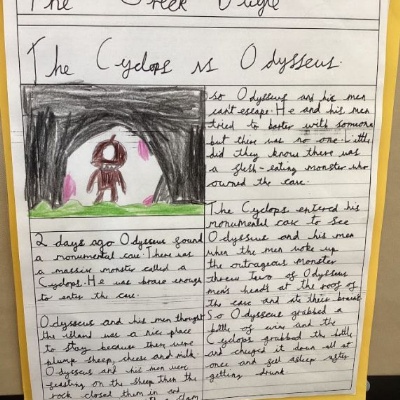 The Greek
The Cyclops vs Odysseus.
2 days ago Odysseus found
a monumental cave. There was
a massive monster called a
Cyclops. He was brave enough
to enter the cave.
Odysseus and his men thought
the island was a nice place
to stay because there were
plump sheep, cheese and milk.
Odysseus and his men were
feasting on the sheep then the
rock closed them in and
so Odysseus and his men
can't escape. He and his men
tried to barter with someone
but there was no one. Little
did they know there was
a flesh-eating monster who
owned the cave.
The Cyclops entered his
monumental cave to see
Odysseus and his men
when the men woke up
the outrageous monster
threw two of Odysseus
men's heads at the roof of
the cave and ate their brains
So Odysseus grabbed a
bottle of wine and the
Cyclops grabbed the bottle
and chugged it down all at
once and fell asleep after
getting drunk